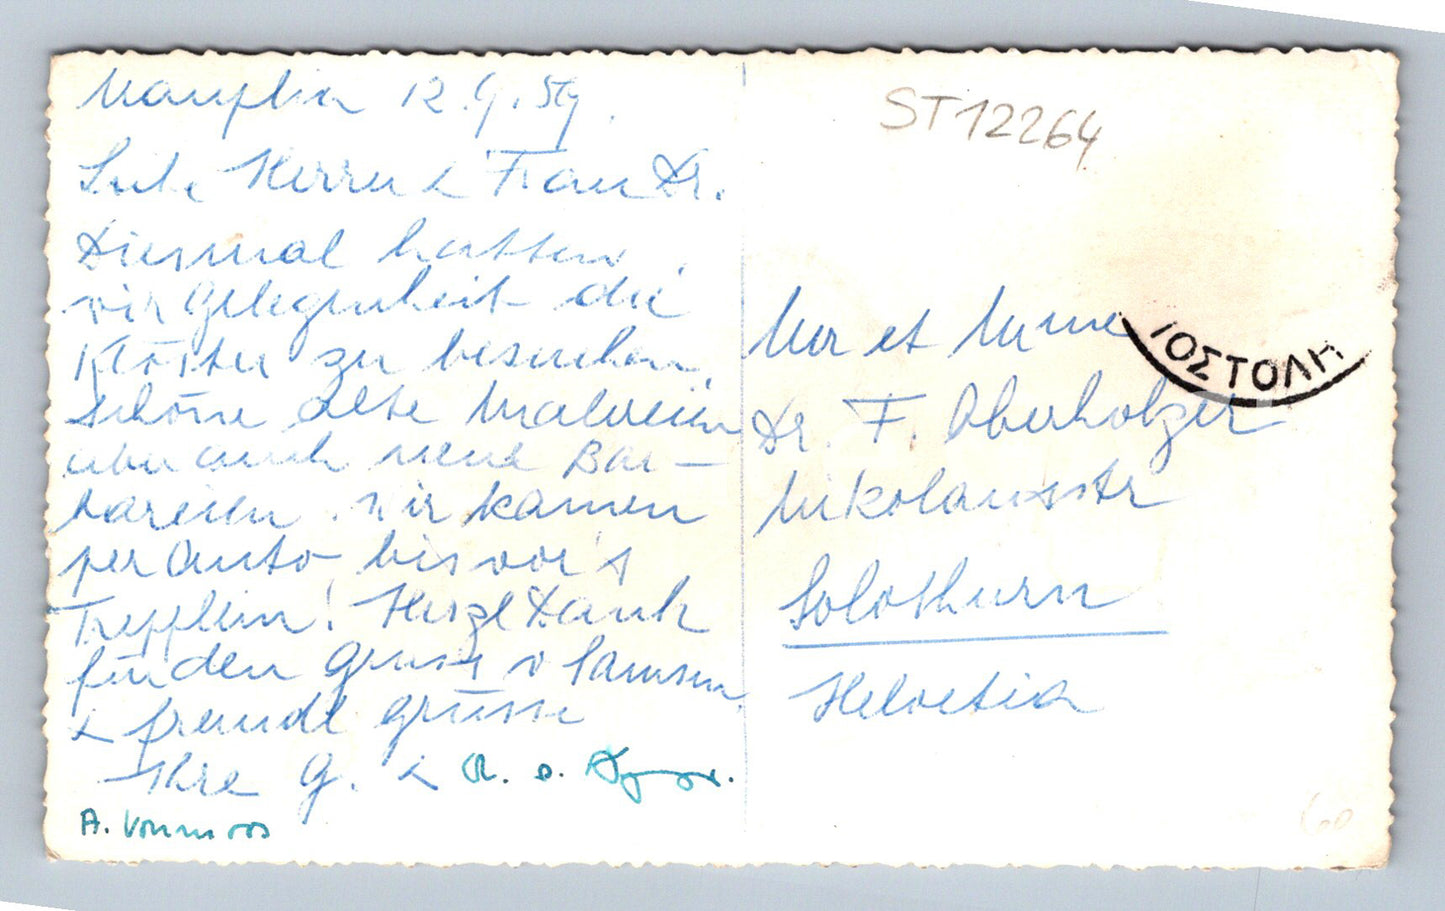 Nauplia 12.9.59.
Liebe Herr u & Frau Dr.
Diesmal hatten
wir Gelegenheit die
Klöster zu besuchen,
schöne alte Malereien
aber auch neue Bar-
bareien. Wir kamen
per Auto bis vor's
Trepplein! Herzl Dank
für den Gruss v Samsun
& freundl grüsse
Ihre G. &
A. Vonmoos
ST12264
ΙΟΣΤΟΛΗ
Mr et Mme
Dr. F. Oberholzer
Nikolausstr
Solothurn
Helvetia
60